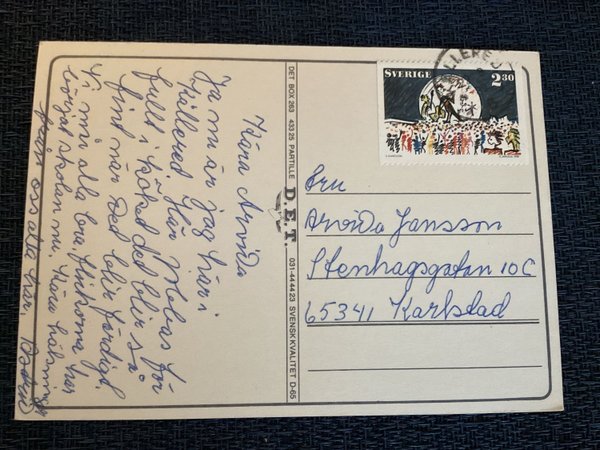 Kära Arvida
Ja nu är jag här i
Kållered. Här målas för
fullt i köket det blir så
fint när det blir färdigt.
Vi mår alla bra flickorna har
börjat skolan nu. Kära hälsningar
från oss alla här.
DET BOX 263 433 25 PARTILLE D.E.T. 031-44 44 23 SVENSK KVALITET D-65
SVERIGE 2.30
LLERED
Fru
Arvida Jansson
Stenhagsgatan 10 C
65341 Karlstad